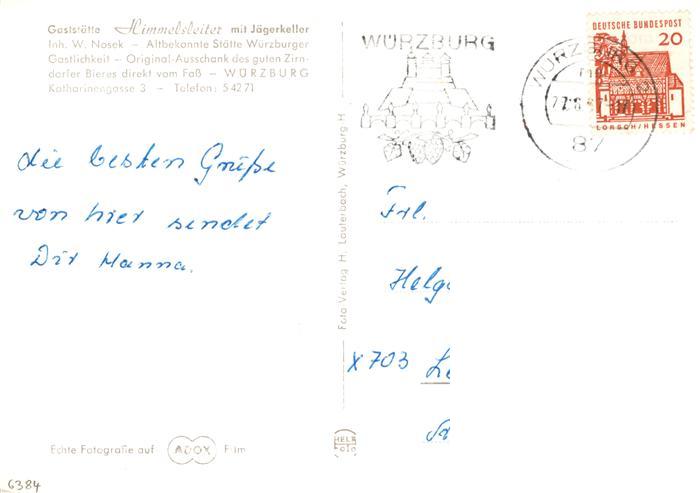 Gaststätte Himmelsleiter mit Jägerkeller
Inh. W. Nosek – Altbekannte Stätte Würzburger
Gastlichkeit – Original-Ausschank des guten Zirn-
dorfer Bieres direkt vom Faß – WÜRZBURG
Katharinengasse 3 – Telefon: 5 42 71
die besten Grüße
von hier sendet
Dir Hanna.
Echte Fotografie auf ADOX Film
6384
Foto-Verlag H. Lauterbach, Würzburg H
WÜRZBURG
WÜRZBURG
87
DEUTSCHE BUNDESPOST
20
LORSCH/HESSEN
Frl.
Helga
X 703